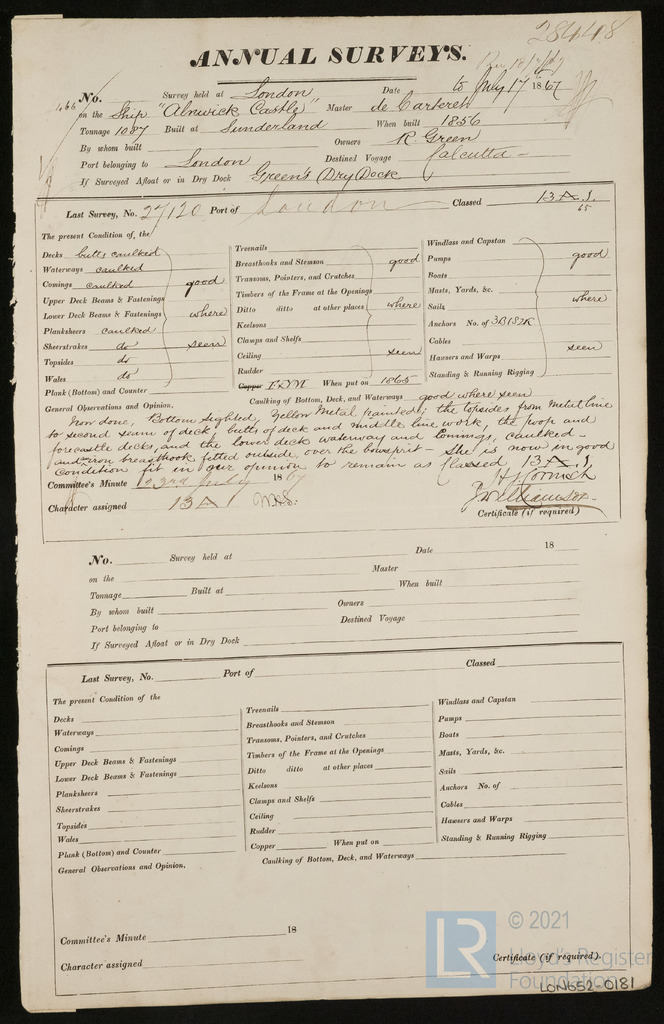 28448
ANNUAL SURVEYS.
No. Survey held at London Date to July 17 1867
on the Ship "Alnwick Castle" Master de Carteret
Tonnage 1087 Built at Sunderland When built 1856
By whom built Owners R. Green
Port belonging to London Destined Voyage Calcutta
If Surveyed Afloat or in Dry Dock Green's Dry Dock
Last Survey, No. 27120 Port of London Classed 13 A.1.
65
The present Condition of, the
Decks butts caulked
Waterways caulked
Comings caulked good
Upper Deck Beams & Fastenings
Lower Deck Beams & Fastenings where
Planksheers caulked
Sheerstrakes do seen
Topsides do
Wales do
Plank (Bottom) and Counter
Treenails
Breasthooks and Stemson good
Transoms, Pointers, and Crutches
Timbers of the Frame at the Openings
Ditto ditto at other places where
Keelsons
Clamps and Shelfs
Ceiling seen
Rudder
Copper When put on 1865
Windlass and Capstan
Pumps good
Boats
Masts, Yards, &c.
Sails where
Anchors No. of 3B1S2K
Cables
Hawsers and Warps seen
Standing & Running Rigging
Caulking of Bottom, Deck, and Waterways good where seen
General Observations and Opinion.
Now done, Bottom sighted, Yellow Metal ; the topsides from Metal line
to second seam of deck, butts of deck and middle line work, the poop and
forecastle decks and the lower deck waterway and Comings, caulked -
and iron breasthook fitted outside, over the bowsprit - she is now in good
Condition fit in our opinion to remain as Classed 13 A.1.
Committee's Minute 23rd July 1867
Character assigned 13 A
Certificate (if required)
No. Survey held at Date 18
on the Master
Tonnage Built at When built
By whom built Owners
Port belonging to Destined Voyage
If Surveyed Afloat or in Dry Dock
Last Survey, No. Port of Classed
The present Condition of the
Decks
Waterways
Comings
Upper Deck Beams & Fastenings
Lower Deck Beams & Fastenings
Planksheers
Sheerstrakes
Topsides
Wales
Plank (Bottom) and Counter
Treenails
Breasthooks and Stemson
Transoms, Pointers, and Crutches
Timbers of the Frame at the Openings
Ditto ditto at other places
Keelsons
Clamps and Shelfs
Ceiling
Rudder
Copper When put on
Windlass and Capstan
Pumps
Boats
Masts, Yards, &c.
Sails
Anchors No. of
Cables
Hawsers and Warps
Standing & Running Rigging
Caulking of Bottom, Deck, and Waterways
General Observations and Opinion,
Committee's Minute 18
Character assigned
Certificate (if required).
LR © 2021
Lloyd's Register
Foundation
LON652_0181